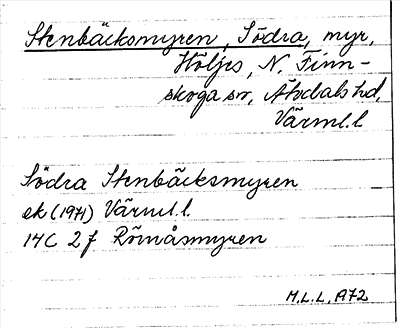 Stenbäcksmyren, Södra, myr,
Höljes, N. Finn-
skoga sn, Älvdals hd,
Värml.l
Södra Stenbäcksmyren
ek (1971) Värml.l.
17C 2f Römåsmyren
M.L.L. A72